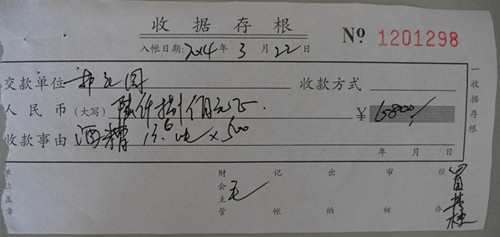 收据存根
入帐日期: 2014年3月22日 № 1201298
交款单位 收款方式
人民币(大写) 陆仟捌佰元正 ¥ 6800/
收款事由 酒糟 13.6吨×500
年 月 日
财会主管 毛 记帐 出纳 审核 经办
一收据存根
单位盖章